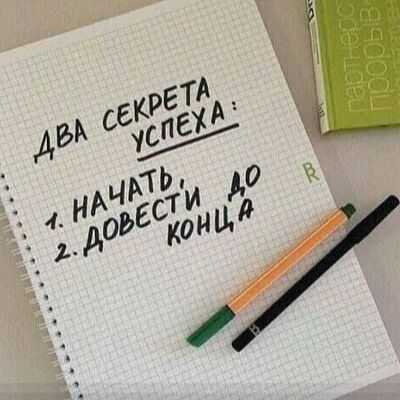 ДВА СЕКРЕТА
УСПЕХА:
1. НАЧАТЬ,
2. ДОВЕСТИ ДО
КОНЦА
BR
партнерс
прорыв